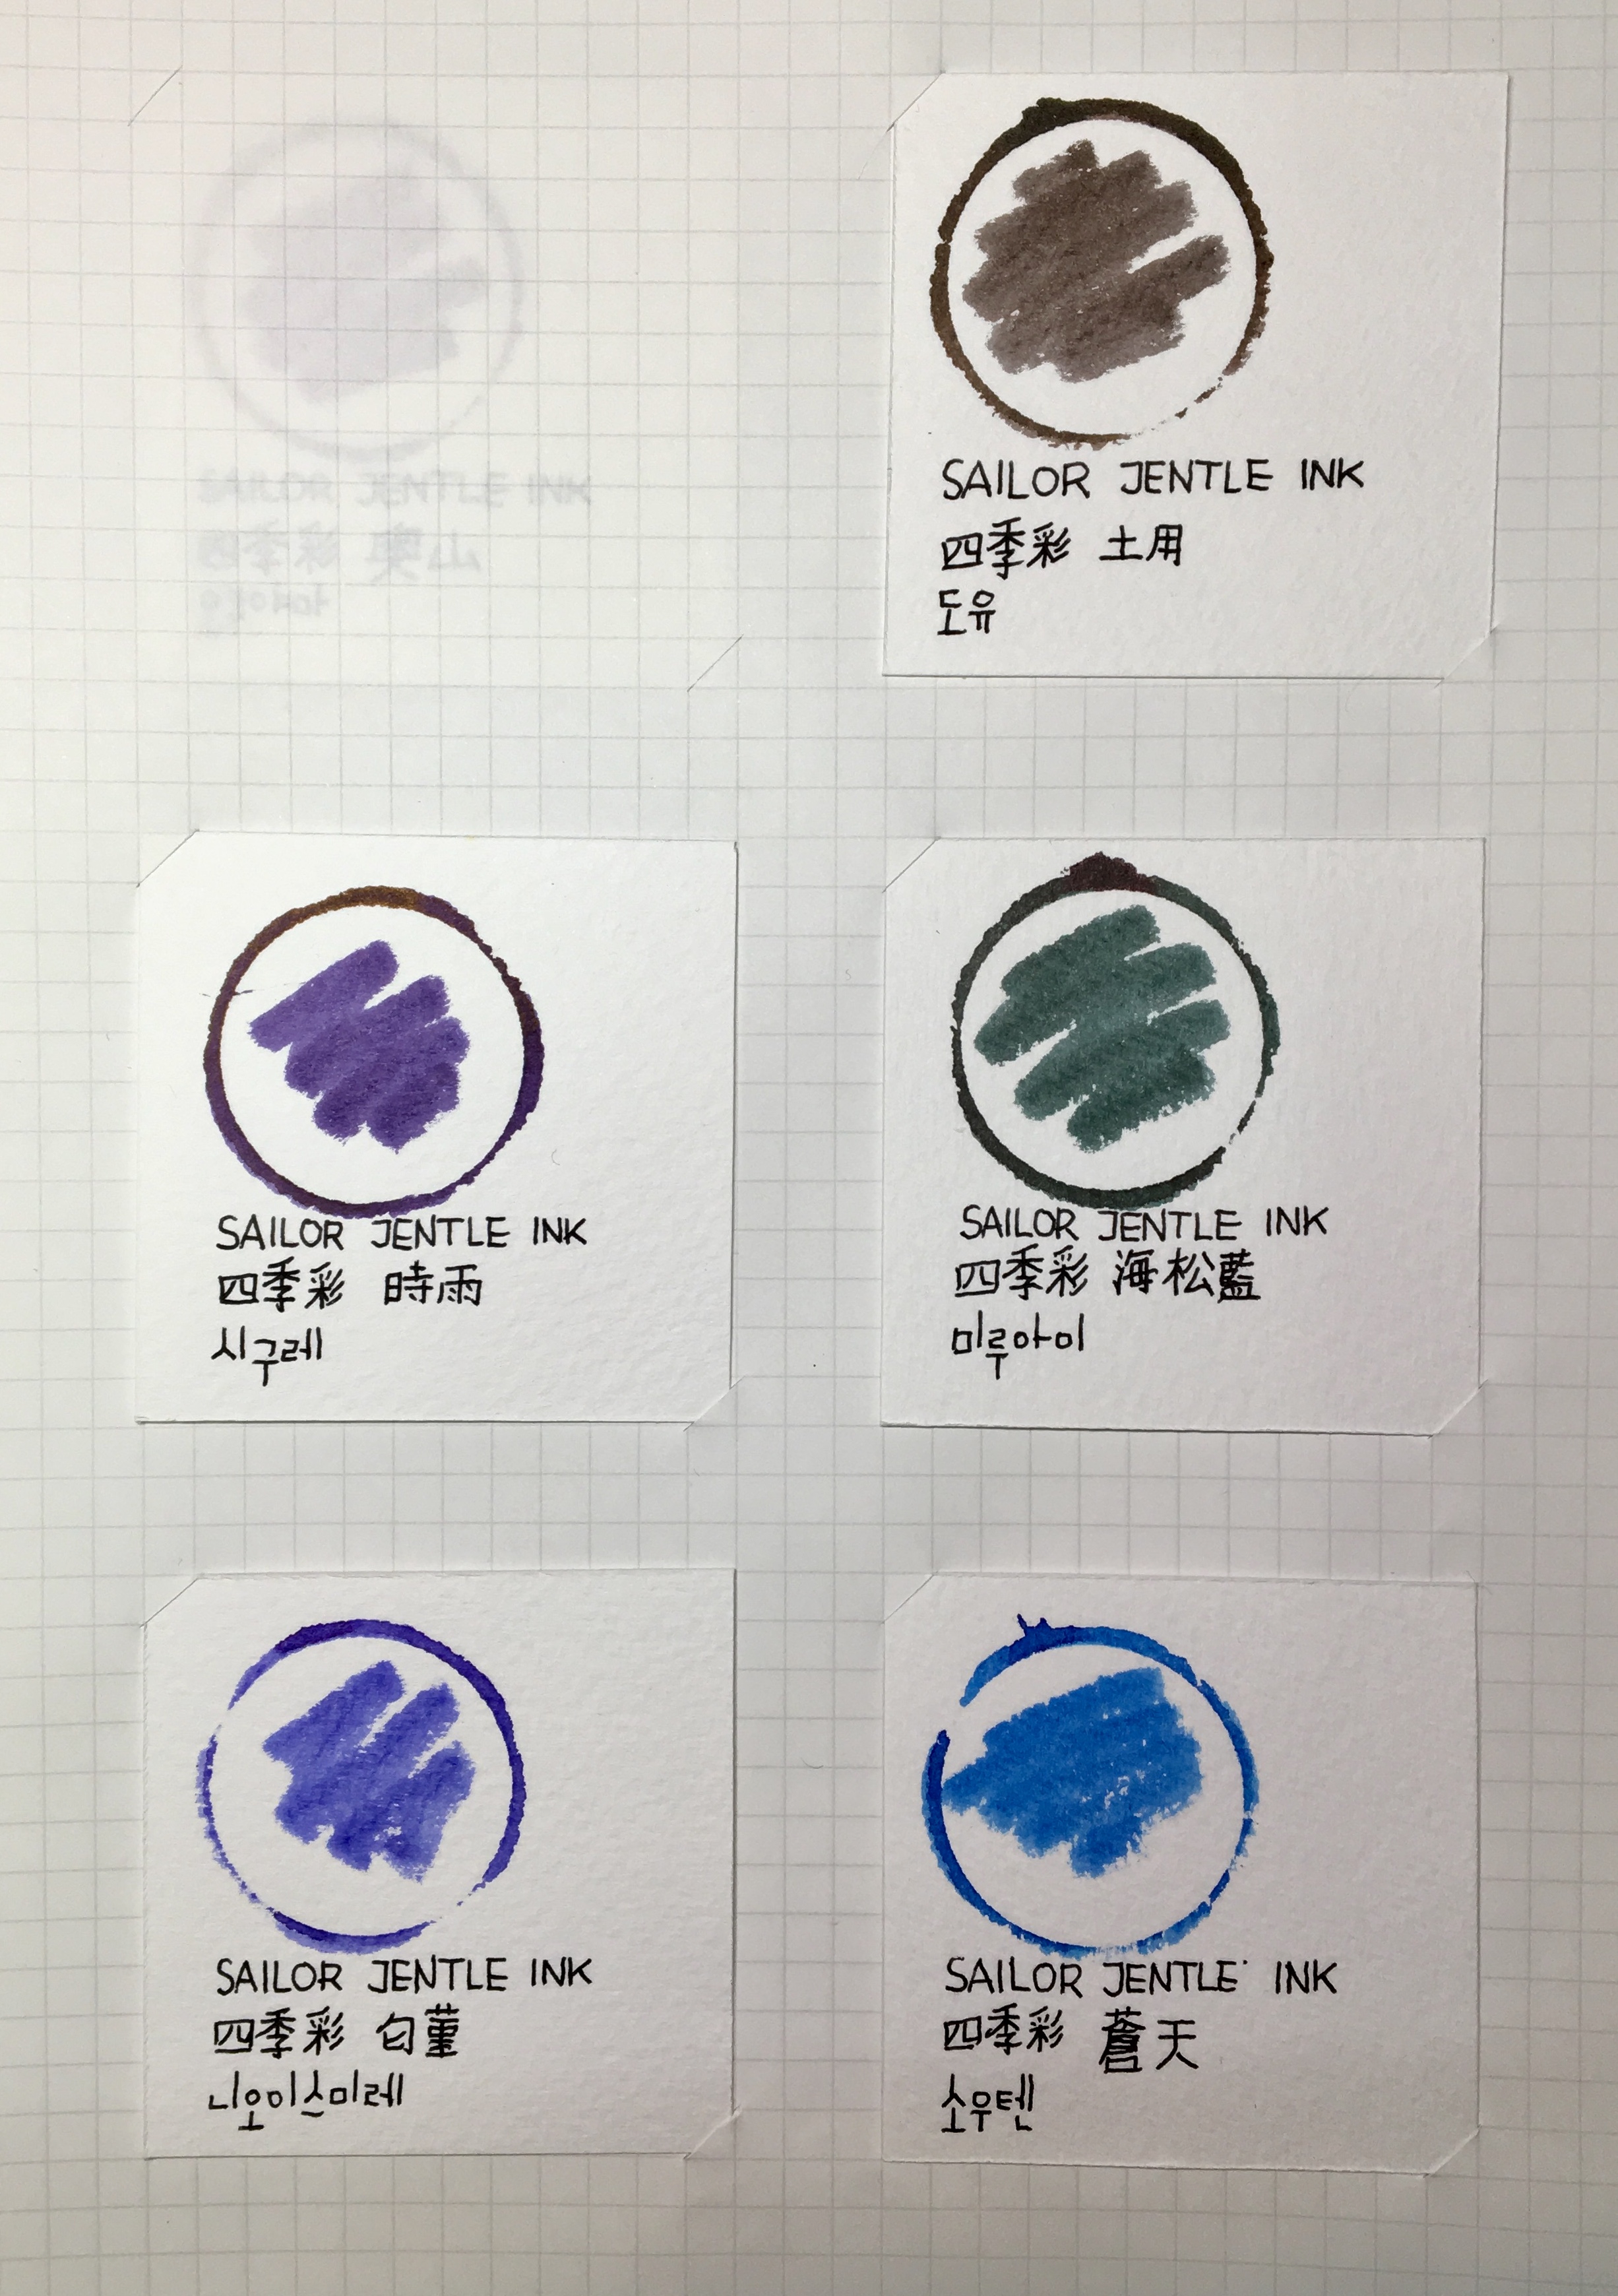 SAILOR JENTLE INK
四季彩 奥山
SAILOR JENTLE INK
四季彩 土用
도유
SAILOR JENTLE INK
四季彩 時雨
시구레
SAILOR JENTLE INK
四季彩 海松藍
미루아이
SAILOR JENTLE INK
四季彩 匂菫
니오이스미레
SAILOR JENTLE INK
四季彩 蒼天
소우텐